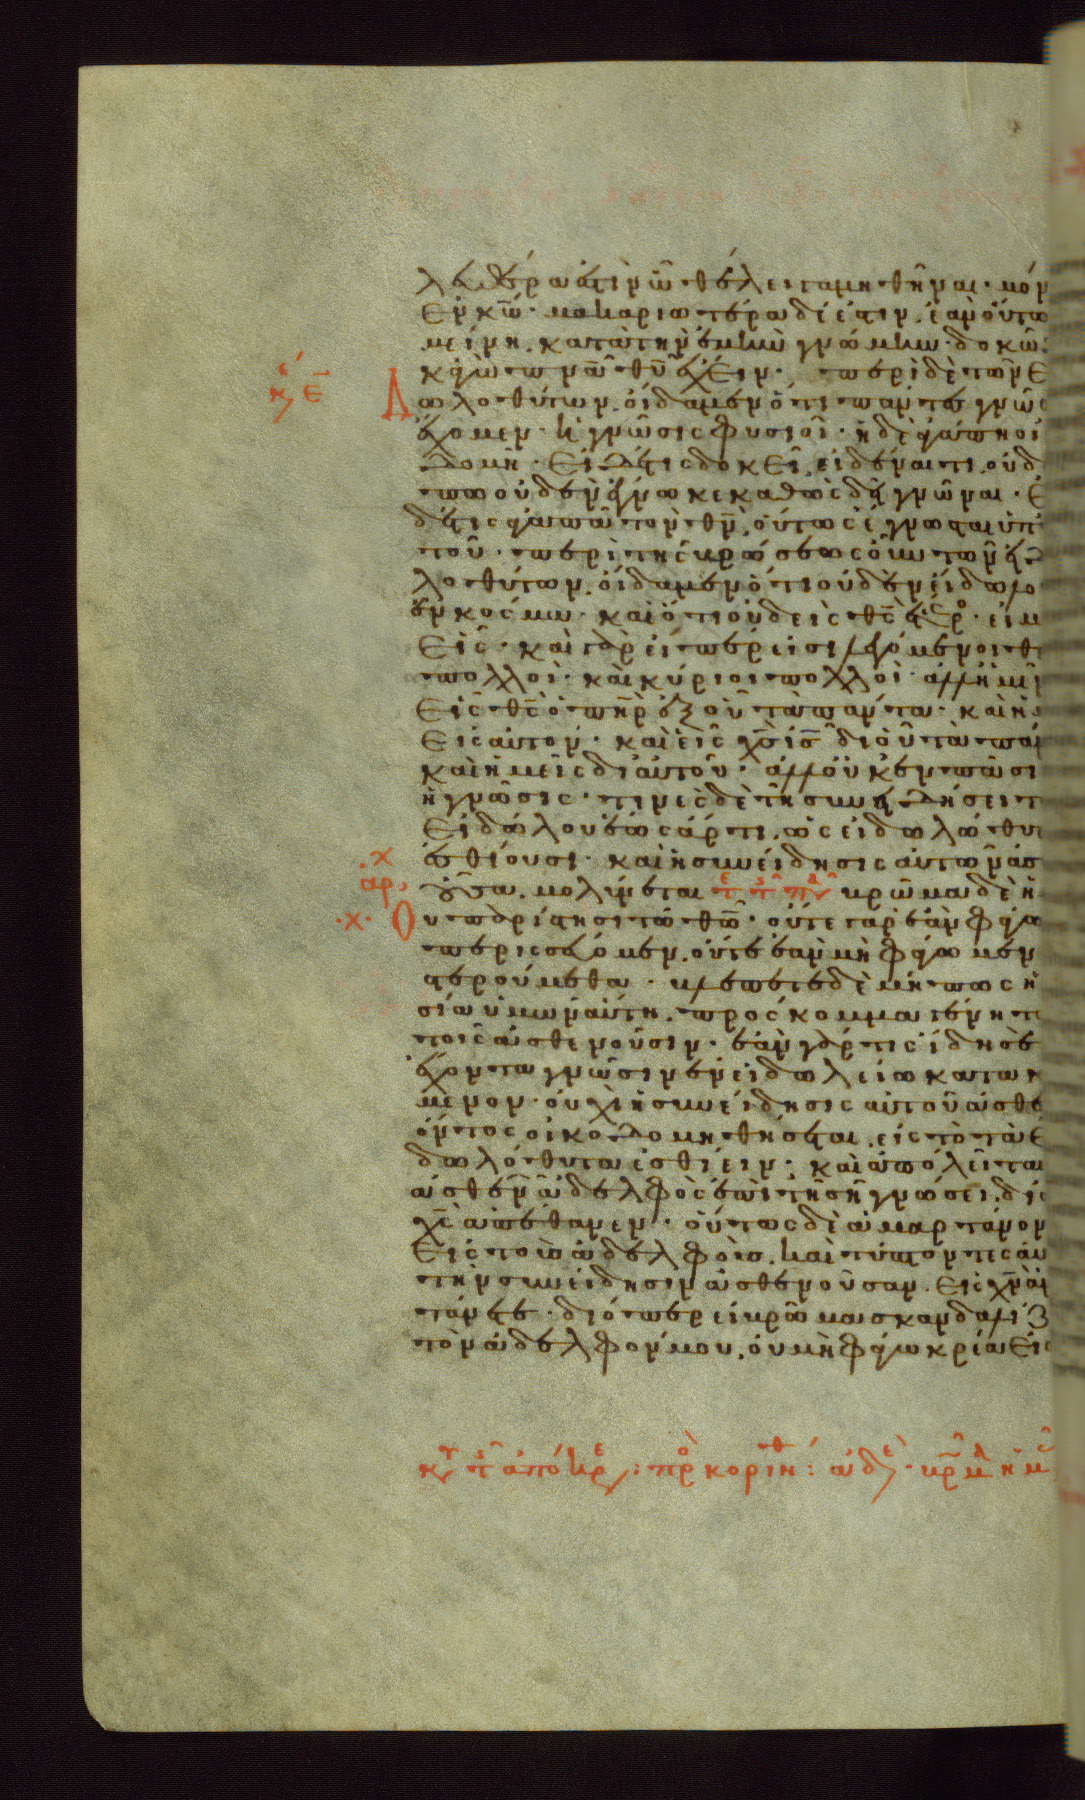 λευθέρα ἐστὶν ὧ θέλει γαμηθῆναι· μόν
ἐν κω̅· μακαριωτέρα δέ ἐστιν, ἐὰν οὕτω
μείνη, κατὰ τὴν ἐμὴν γνώμην· δοκῶ
κἀγὼ πνα̅ θυ̅ ἔχειν· περὶ δὲ τῶν ε
κε ε̅
δωλοθύτων, οἴδαμεν ὅτι πάντες γνῶ
ἔχομεν· ἡ γνῶσις φυσιοῖ· ἡ δὲ ἀγάπη οἰ
δομεῖ· εἰ δέ τις δοκεῖ εἰδέναι τι, οὐδ
πω οὐδὲν ἔγνωκε καθὼς δεῖ γνῶναι· ε
δέ τις ἀγαπᾶ τὸν θν̅, οὗτος ἔγνωσται ὑπ
τοῦ· περὶ τῆς βρώσεως οὖν τῶν εἰδ
λοθύτων, οἴδαμεν ὅτι οὐδὲν εἴδωλο
ἐν κόσμω· καὶ ὅτι οὐδεὶς θς̅ ἕτερος· εἰ μ
εἷς· καὶ γὰρ εἴπερ εἰσὶ λεγόμενοι θ
πολλοὶ· καὶ κύριοι πολλοὶ· ἀλλ' ἡμῖν
εἷς θς̅ ὁ πηρ̅ ἐξ οὗ τὰ πάντα· καὶ ἡ
εἰς αὐτόν· καὶ εἷς κς̅ ις̅ χς̅ δι' οὗ τὰ πάν
καὶ ἡμεῖς δι' αὐτοῦ· ἀλλ' οὐκ ἐν πᾶσι
ἡ γνῶσις· τινὲς δὲ τῆ συνειδήσει τ
εἰδώλου ἕως ἄρτι, ὡς εἰδωλόθυτ
ἐσθίουσι· καὶ ἡ συνείδησις αὐτῶν ἀσ
αρχ
οὖσα, μολύνεται βρῶμα δὲ ἡ
οὐ παρίστησι τῶ θω̅· οὔτε γὰρ ἐὰν φάγω
περισσεύομεν, οὔτε ἐὰν μὴ φάγωμεν
στερούμεθα· βλέπετε δὲ μή πως ἡ
σία ὑμῶν αὕτη, πρόσκομμα γένητ
τοῖς ἀσθενοῦσιν· ἐὰν γάρ τις ἴδη σὲ
ἔχοντα γνῶσιν ἐν εἰδωλείω κατακ
μενον· οὐχὶ ἡ συνείδησις αὐτοῦ ἀσθε
όντος οἰκοδομηθήσεται, εἰς τὸ τὰ ε
δωλόθυτα ἐσθίειν· καὶ ἀπόλειται
ἀσθενῶν ἀδελφὸς ἐπὶ τῆ σῆ γνώσει, δι
χς̅ ἀπέθανεν· οὕτως δὲ ἁμαρτάνον
εἰς τοὺς ἀδελφοὺς, καὶ τύπτοντες αὐ
τὴν συνείδησιν ἀσθενοῦσαν, εἰς χν̅ ἁμ
τάνετε· διόπερ εἰ βρῶμα σκανδαλίζ
τὸν ἀδελφόν μου, οὐ μὴ φάγω κρέα εἰς
κυ τ ἀπόκρε· πρ κορινθ: ἀδε· βρμ ἡμ